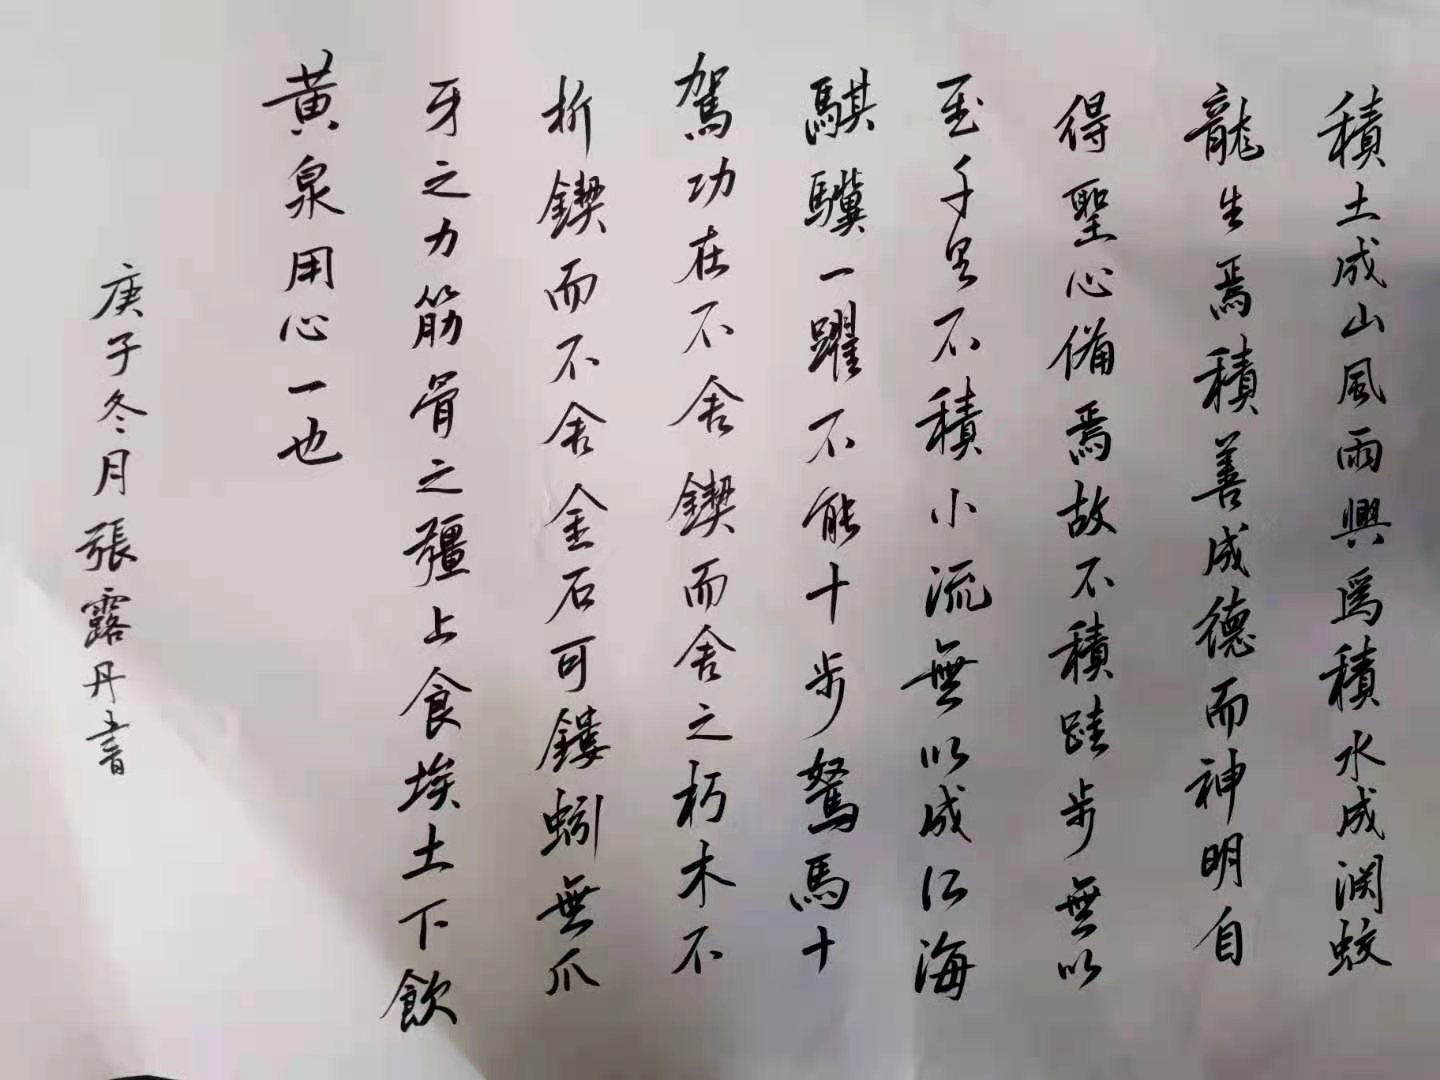 積土成山風雨興焉積水成渊蛟
龍生焉積善成德而神明自
得聖心備焉故不積跬步無以
至千里不積小流無以成江海
騏驥一躍不能十步駑馬十
駕功在不舍鍥而舍之朽木不
折鍥而不舍金石可鏤蚓無爪
牙之力筋骨之疆上食埃土下飲
黃泉用心一也
庚子冬月張露丹書